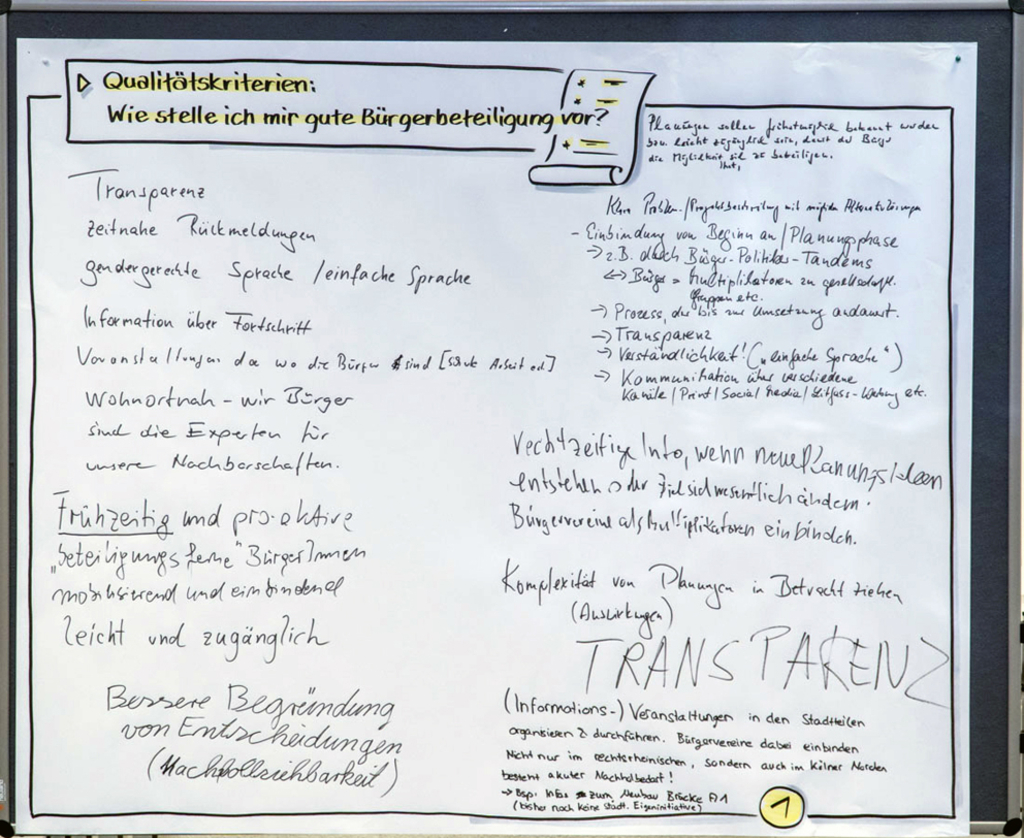 Qualitätskriterien:
Wie stelle ich mir gute Bürgerbeteiligung vor?
Transparenz
zeitnahe Rückmeldungen
gendergerechte Sprache / einfache Sprache
Information über Fortschritt
Veranstaltungen da wo die Bürger sind
Wohnortnah - wir Bürger
sind die Experten für
unsere Nachbarschaften.
Frühzeitig und pro-aktive
"beteiligungsferne" BürgerInnen
mobilisierend und einbindend
leicht und zugänglich
Bessere Begründung
von Entscheidungen
(Nachvollziehbarkeit)
Planungen sollen frühstmöglich bekannt werden
bzw. leicht zugänglich sein, damit der Bürger
die Möglichkeit hat, sich zu beteiligen.
Klare Problem-/Projektbeschreibung mit möglichen Alternativlösungen
- Einbindung von Beginn an / Planungsphase
-> z.B. durch Bürger-Politiker-Tandems
<-> Bürger = Multiplikatoren zu gesellschaftl.
Gruppen etc.
-> Prozess, der bis zur Umsetzung andauert.
-> Transparenz
-> Verständlichkeit! ("einfache Sprache")
-> Kommunikation über verschiedene
Kanäle / Print / Social Media / Litfass-Werbung etc.
rechtzeitige Info, wenn neue Planungsideen
entstehen oder Ziel sich wesentlich ändern.
Bürgervereine als Multiplikatoren einbinden.
Komplexität von Planungen in Betracht ziehen
(Auswirkungen)
TRANSPARENZ
(Informations-) Veranstaltungen in den Stadtteilen
organisieren & durchführen. Bürgervereine dabei einbinden
Nicht nur im rechtsrheinischen, sondern auch im Kölner Norden
besteht akuter Nachholbedarf!
-> Bsp. Infos zum Neubau Brücke A1
(bisher noch keine städt. Eigeninitiative)
1